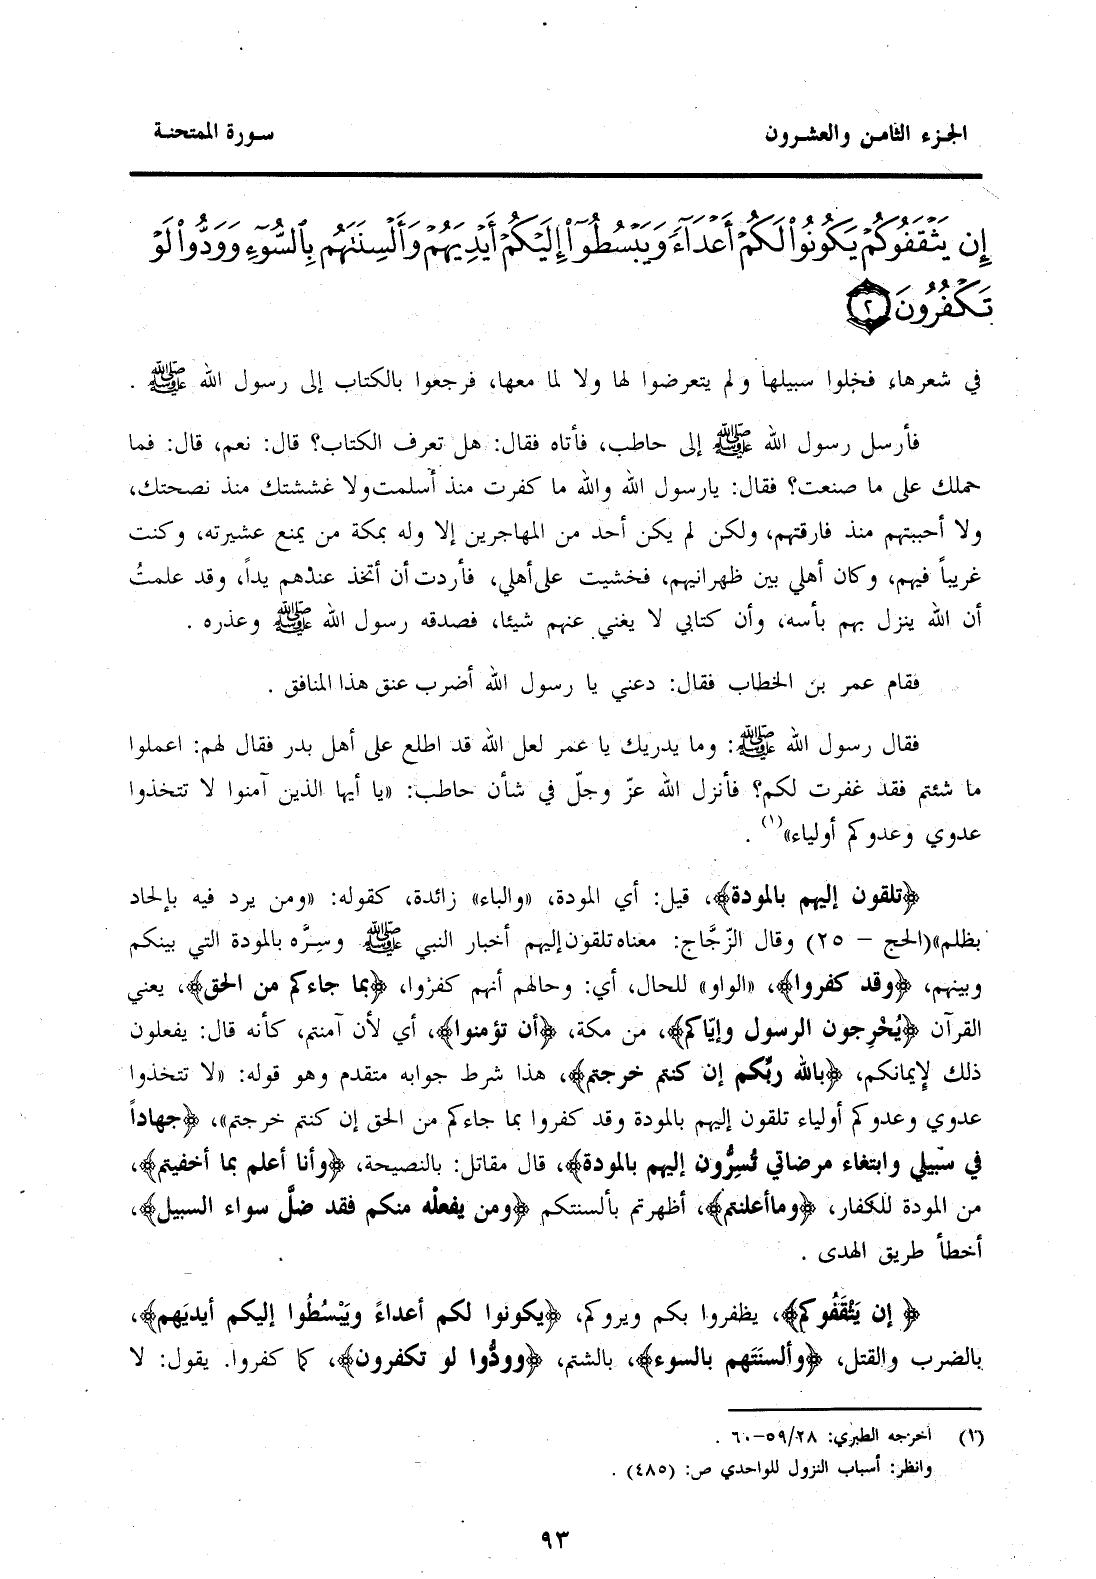 الجزء الثامن والعشرون
سورة الممتحنة
إِن يَثْقَفُوكُمْ يَكُونُوا۟ لَكُمْ أَعْدَآءً وَيَبْسُطُوٓا۟ إِلَيْكُمْ أَيْدِيَهُمْ وَأَلْسِنَتَهُم بِٱلسُّوٓءِ وَوَدُّوا۟ لَوْ
تَكْفُرُونَ ٢
في شعرها، فخلوا سبيلها ولم يتعرضوا لها ولا لما معها، فرجعوا بالكتاب إلى رسول الله ﷺ .
فأرسل رسول الله ﷺ إلى حاطب، فأتاه فقال: هل تعرف الكتاب؟ قال: نعم، قال: فما
حملك على ما صنعت؟ فقال: يارسول الله والله ما كفرت منذ أسلمت ولا غششتك منذ نصحتك،
ولا أحببتهم منذ فارقتهم، ولكن لم يكن أحد من المهاجرين إلا وله بمكة من يمنع عشيرته، وكنت
غريباً فيهم، وكان أهلي بين ظهرانيهم، فخشيت على أهلي، فأردت أن أتخذ عندهم يداً، وقد علمتُ
أن الله ينزل بهم بأسه، وأن كتابي لا يغني عنهم شيئا، فصدقه رسول الله ﷺ وعذره .
فقام عمر بن الخطاب فقال: دعني يا رسول الله أضرب عنق هذا المنافق .
فقال رسول الله ﷺ: وما يدريك يا عمر لعل الله قد اطلع على أهل بدر فقال لهم: اعملوا
ما شئتم فقد غفرت لكم؟ فأنزل الله عزّ وجلّ في شأن حاطب: «يا أيها الذين آمنوا لا تتخذوا
عدوي وعدوكم أولياء»(١) .
﴿تلقون إليهم بالمودة﴾، قيل: أي المودة، «والباء» زائدة، كقوله: «ومن يرد فيه بإلحاد
بظلم»(الحج – ٢٥) وقال الزّجَّاج: معناه تلقون إليهم أخبار النبي ﷺ وسِرَّه بالمودة التي بينكم
وبينهم، ﴿وقد كفروا﴾، «الواو» للحال، أي: وحالهم أنهم كفرُوا، ﴿بما جاءكم من الحق﴾، يعني
القرآن ﴿يُخْرِجون الرسول وإيّاكم﴾، من مكة، ﴿أن تؤمنوا﴾، أي لأن آمنتم، كأنه قال: يفعلون
ذلك لإيمانكم، ﴿بالله ربِّكم إن كنتم خرجتم﴾، هذا شرط جوابه متقدم وهو قوله: «لا تتخذوا
عدوي وعدوكم أولياء تلقون إليهم بالمودة وقد كفروا بما جاءكم من الحق إن كنتم خرجتم»، ﴿جهاداً
في سبيلي وابتغاء مرضاتي تُسِرُّون إليهم بالمودة﴾، قال مقاتل: بالنصيحة، ﴿وأنا أعلم بما أخفيتم﴾،
من المودة للكفار، ﴿وماأعلنتم﴾، أظهرتم بألسنتكم ﴿ومن يفعلْه منكم فقد ضلَّ سواء السبيل﴾،
أخطأ طريق الهدى .
﴿ إن يَثْقَفُوكم﴾، يظفروا بكم ويروكم، ﴿يكونوا لكم أعداءً ويَبْسُطُوا إليكم أيديَهم﴾،
بالضرب والقتل، ﴿وألسنَتَهم بالسوء﴾، بالشتم، ﴿وودُّوا لو تكفرون﴾، كما كفروا. يقول: لا
(١) أخرجه الطبري: ٥٩/٢٨–٦٠ .
وانظر: أسباب النزول للواحدي ص: (٤٨٥) .
٩٣